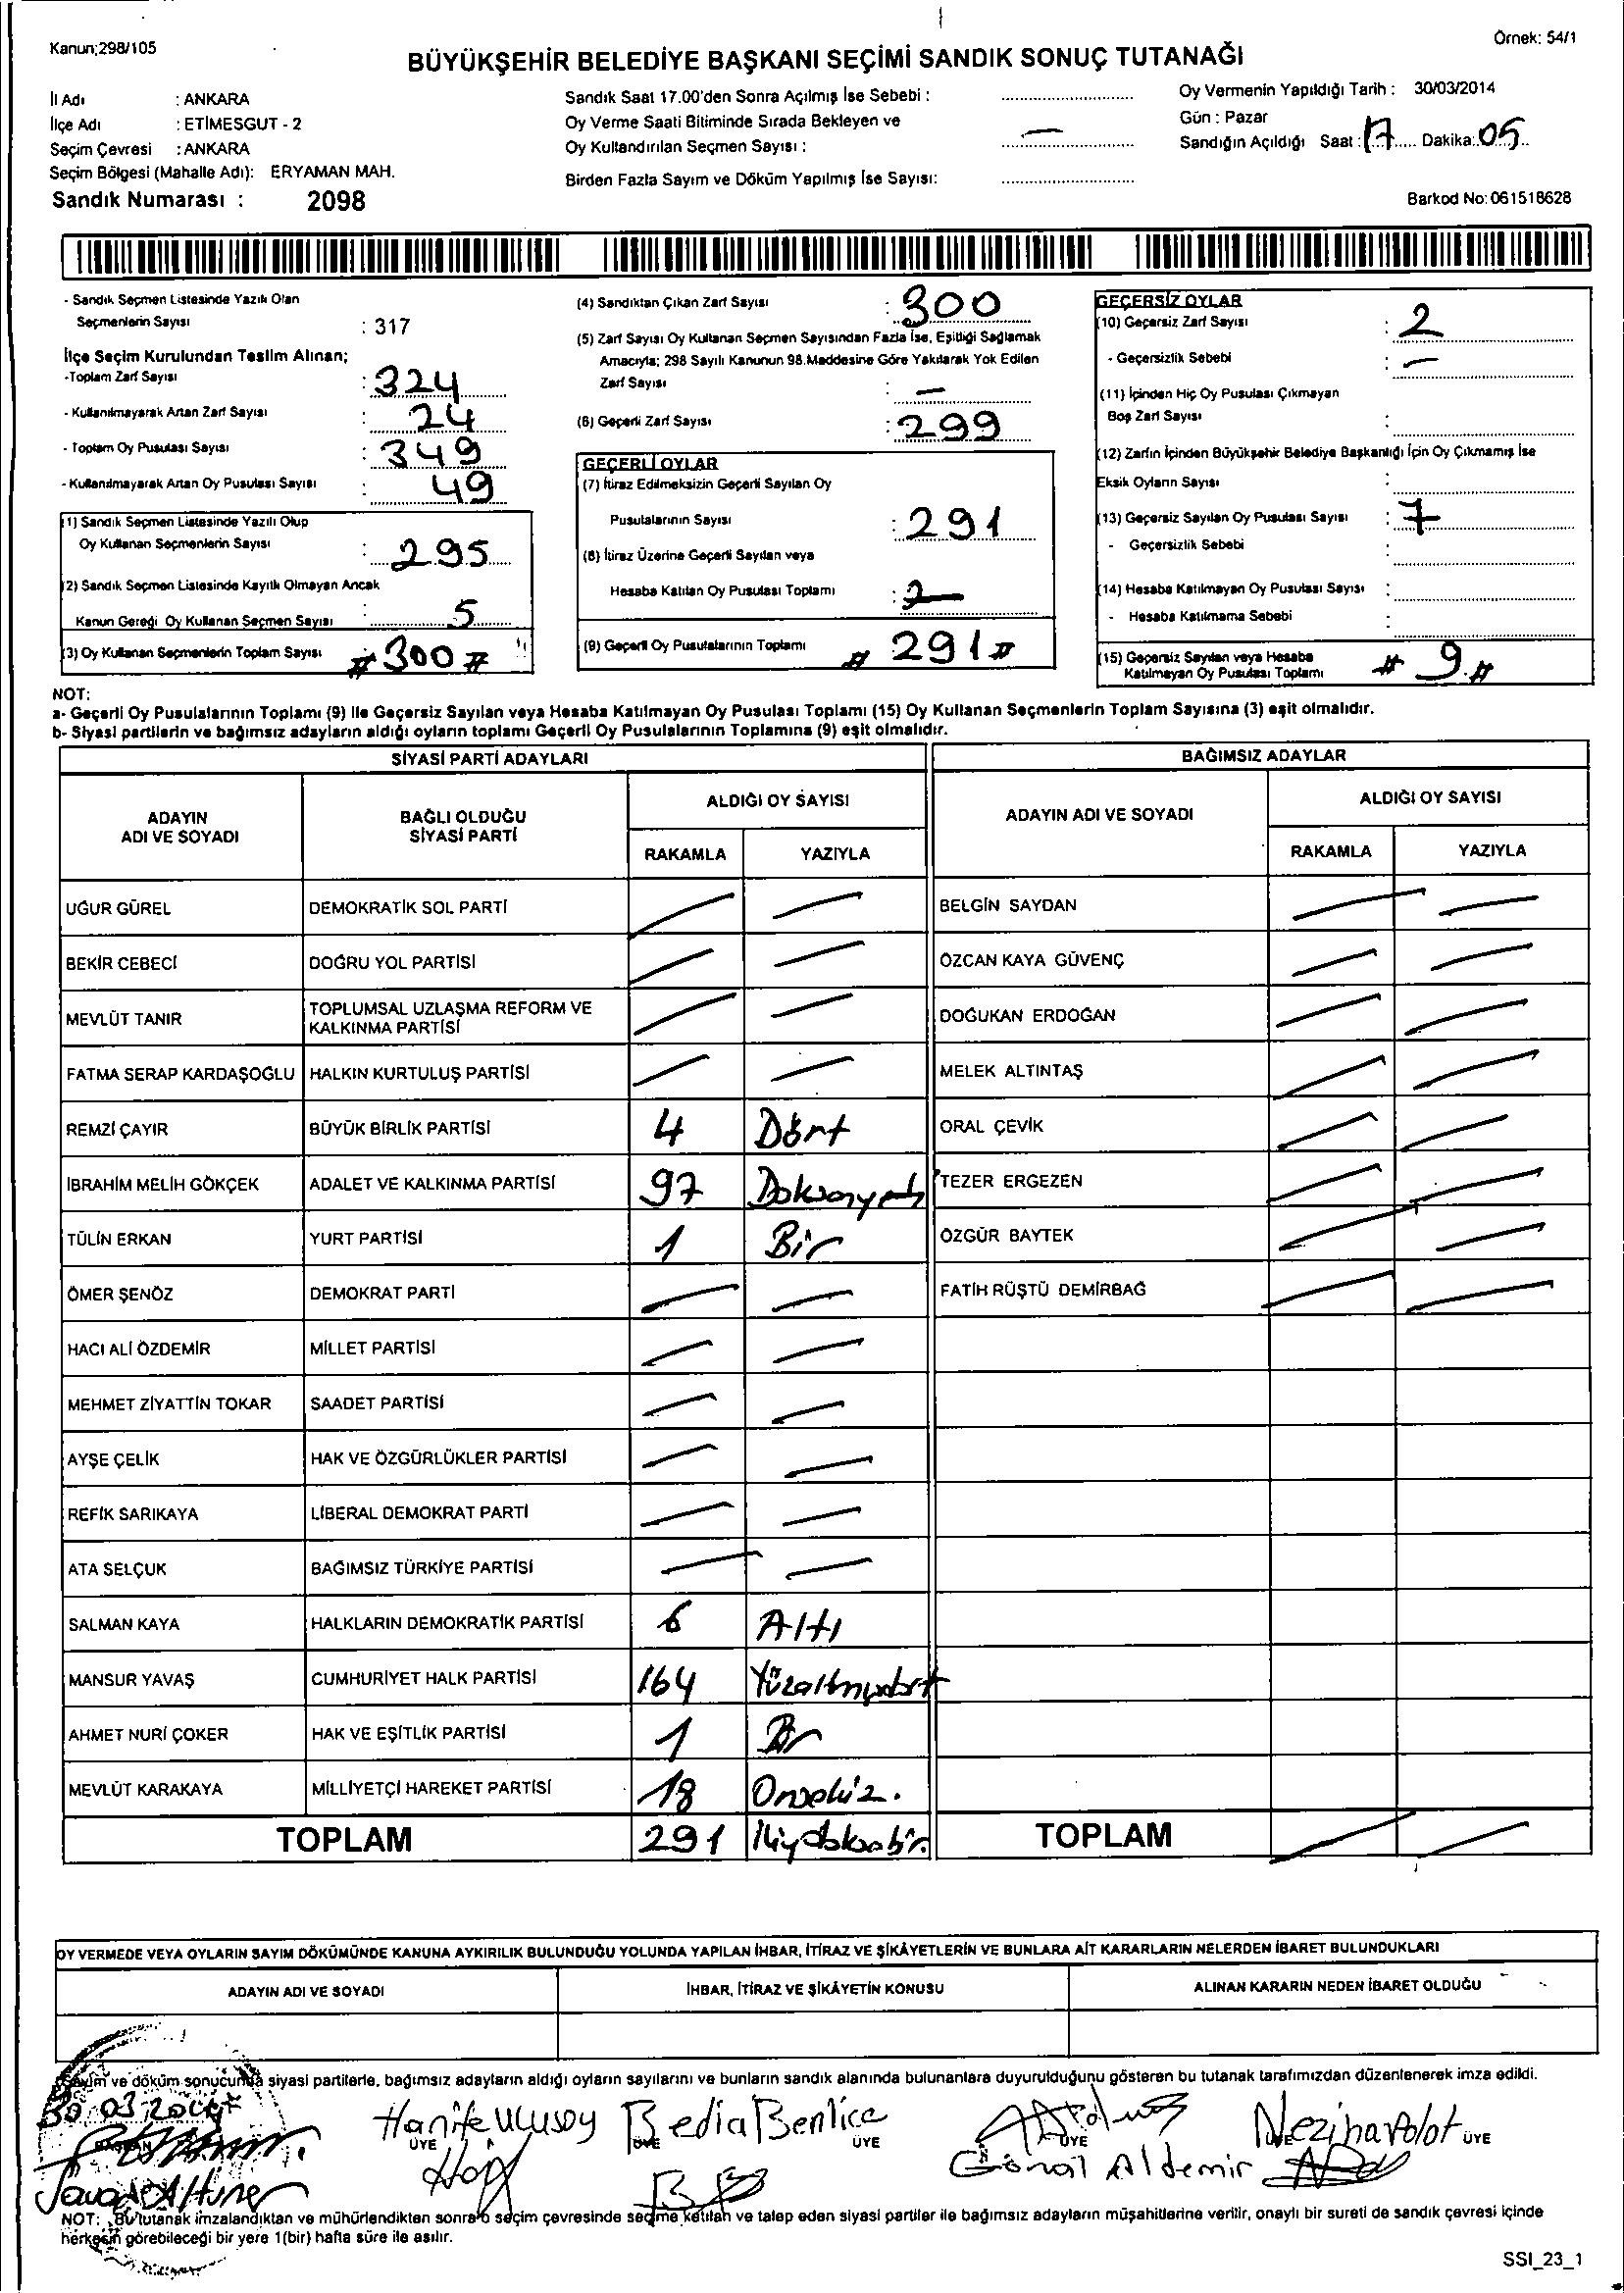 Kanun;298/105
Örnek: 54/1
BÜYÜKŞEHİR BELEDİYE BAŞKANI SEÇİMİ SANDIK SONUÇ TUTANAĞI
İl Adı : ANKARA
İlçe Adı : ETİMESGUT - 2
Seçim Çevresi : ANKARA
Seçim Bölgesi (Mahalle Adı): ERYAMAN MAH.
Sandık Numarası : 2098
Sandık Saat 17.00'den Sonra Açılmış İse Sebebi :
Oy Verme Saati Bitiminde Sırada Bekleyen ve
Oy Kullandırılan Seçmen Sayısı : —
Birden Fazla Sayım ve Döküm Yapılmış İse Sayısı:
Oy Vermenin Yapıldığı Tarih : 30/03/2014
Gün : Pazar
Sandığın Açıldığı Saat : 17 Dakika: 05
Barkod No: 061518628
- Sandık Seçmen Listesinde Yazılı Olan
Seçmenlerin Sayısı : 317
İlçe Seçim Kurulundan Teslim Alınan;
-Toplam Zarf Sayısı : 324
- Kullanılmayarak Artan Zarf Sayısı : 24
- Toplam Oy Pusulası Sayısı : 349
- Kullanılmayarak Artan Oy Pusulası Sayısı : 49
(1) Sandık Seçmen Listesinde Yazılı Olup
Oy Kullanan Seçmenlerin Sayısı : 295
(2) Sandık Seçmen Listesinde Kayıtlı Olmayan Ancak
Kanun Gereği Oy Kullanan Seçmen Sayısı : 5
(3) Oy Kullanan Seçmenlerin Toplam Sayısı # 300 #
(4) Sandıktan Çıkan Zarf Sayısı : 300
(5) Zarf Sayısı Oy Kullanan Seçmen Sayısından Fazla İse, Eşitliği Sağlamak
Amacıyla; 298 Sayılı Kanunun 98.Maddesine Göre Yakılarak Yok Edilen
Zarf Sayısı : —
(6) Geçerli Zarf Sayısı : 299
GEÇERLİ OYLAR
(7) İtiraz Edilmeksizin Geçerli Sayılan Oy
Pusulalarının Sayısı : 291
(8) İtiraz Üzerine Geçerli Sayılan veya
Hesaba Katılan Oy Pusulası Toplamı :
(9) Geçerli Oy Pusulalarının Toplamı # 291 #
GEÇERSİZ OYLAR
(10) Geçersiz Zarf Sayısı : 2
- Geçersizlik Sebebi : —
(11) İçinden Hiç Oy Pusulası Çıkmayan
Boş Zarf Sayısı :
(12) Zarfın İçinden Büyükşehir Belediye Başkanlığı İçin Oy Çıkmamış İse
Eksik Oyların Sayısı :
(13) Geçersiz Sayılan Oy Pusulası Sayısı : 7
- Geçersizlik Sebebi :
(14) Hesaba Katılmayan Oy Pusulası Sayısı :
- Hesaba Katılmama Sebebi :
(15) Geçersiz Sayılan veya Hesaba
Katılmayan Oy Pusulası Toplamı # 9 #
NOT:
a- Geçerli Oy Pusulalarının Toplamı (9) ile Geçersiz Sayılan veya Hesaba Katılmayan Oy Pusulası Toplamı (15) Oy Kullanan Seçmenlerin Toplam Sayısına (3) eşit olmalıdır.
b- Siyasi partilerin ve bağımsız adayların aldığı oyların toplamı Geçerli Oy Pusulalarının Toplamına (9) eşit olmalıdır.
SİYASİ PARTİ ADAYLARI
ADAYIN ADI VE SOYADI
BAĞLI OLDUĞU SİYASİ PARTİ
ALDIĞI OY SAYISI
RAKAMLA YAZIYLA
UĞUR GÜREL DEMOKRATİK SOL PARTİ — —
BEKİR CEBECİ DOĞRU YOL PARTİSİ — —
MEVLÜT TANIR TOPLUMSAL UZLAŞMA REFORM VE KALKINMA PARTİSİ — —
FATMA SERAP KARDAŞOĞLU HALKIN KURTULUŞ PARTİSİ — —
REMZİ ÇAYIR BÜYÜK BİRLİK PARTİSİ 4 Dört
İBRAHİM MELİH GÖKÇEK ADALET VE KALKINMA PARTİSİ 97 Doksanyedi
TÜLİN ERKAN YURT PARTİSİ 1 Bir
ÖMER ŞENÖZ DEMOKRAT PARTİ — —
HACI ALİ ÖZDEMİR MİLLET PARTİSİ — —
MEHMET ZİYATTİN TOKAR SAADET PARTİSİ — —
AYŞE ÇELİK HAK VE ÖZGÜRLÜKLER PARTİSİ — —
REFİK SARIKAYA LİBERAL DEMOKRAT PARTİ — —
ATA SELÇUK BAĞIMSIZ TÜRKİYE PARTİSİ — —
SALMAN KAYA HALKLARIN DEMOKRATİK PARTİSİ 6 Altı
MANSUR YAVAŞ CUMHURİYET HALK PARTİSİ 164 Yüzaltmışdört
AHMET NURİ ÇOKER HAK VE EŞİTLİK PARTİSİ 1 Bir
MEVLÜT KARAKAYA MİLLİYETÇİ HAREKET PARTİSİ 18 Onsekiz.
TOPLAM 291
BAĞIMSIZ ADAYLAR
ADAYIN ADI VE SOYADI
ALDIĞI OY SAYISI
RAKAMLA YAZIYLA
BELGİN SAYDAN — —
ÖZCAN KAYA GÜVENÇ — —
DOĞUKAN ERDOĞAN — —
MELEK ALTINTAŞ — —
ORAL ÇEVİK — —
TEZER ERGEZEN — —
ÖZGÜR BAYTEK — —
FATİH RÜŞTÜ DEMİRBAĞ — —
TOPLAM — —
OY VERMEDE VEYA OYLARIN SAYIM DÖKÜMÜNDE KANUNA AYKIRILIK BULUNDUĞU YOLUNDA YAPILAN İHBAR, İTİRAZ VE ŞİKÂYETLERİN VE BUNLARA AİT KARARLARIN NELERDEN İBARET BULUNDUKLARI
ADAYIN ADI VE SOYADI İHBAR, İTİRAZ VE ŞİKÂYETİN KONUSU ALINAN KARARIN NEDEN İBARET OLDUĞU
Sayım ve döküm sonucunda siyasi partilerle, bağımsız adayların aldığı oyların sayılarını ve bunların sandık alanında bulunanlara duyurulduğunu gösteren bu tutanak tarafımızdan düzenlenerek imza edildi.
30.03.2014
Hanife Ulusoy Bedia Benlice Nezihа Polot
BAŞKAN ÜYE ÜYE ÜYE ÜYE ÜYE ÜYE
Gönül Aldemir
NOT: Bu tutanak imzalandıktan ve mühürlendikten sonra o seçim çevresinde seçime katılan ve talep eden siyasi partiler ile bağımsız adayların müşahitlerine verilir, onaylı bir sureti de sandık çevresi içinde
herkesin görebileceği bir yere 1(bir) hafta süre ile asılır.
SSI_23_1